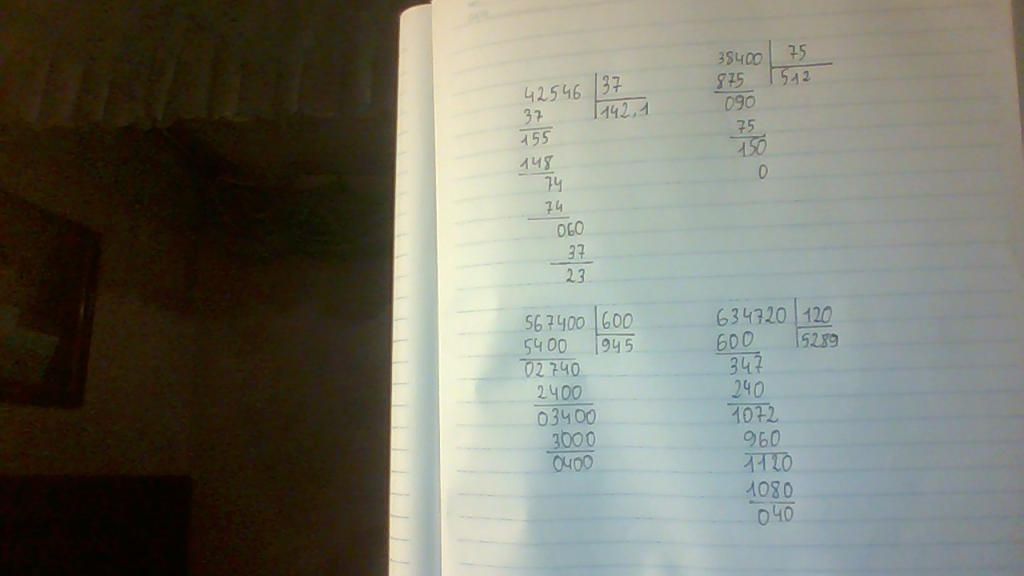 42546 37
37 142,1
155
148
74
74
060
37
23
38400 75
875 512
090
75
150
0
567400 600
5400 945
02740
2400
03400
3000
0400
634720 120
600 5289
347
240
1072
960
1120
1080
040